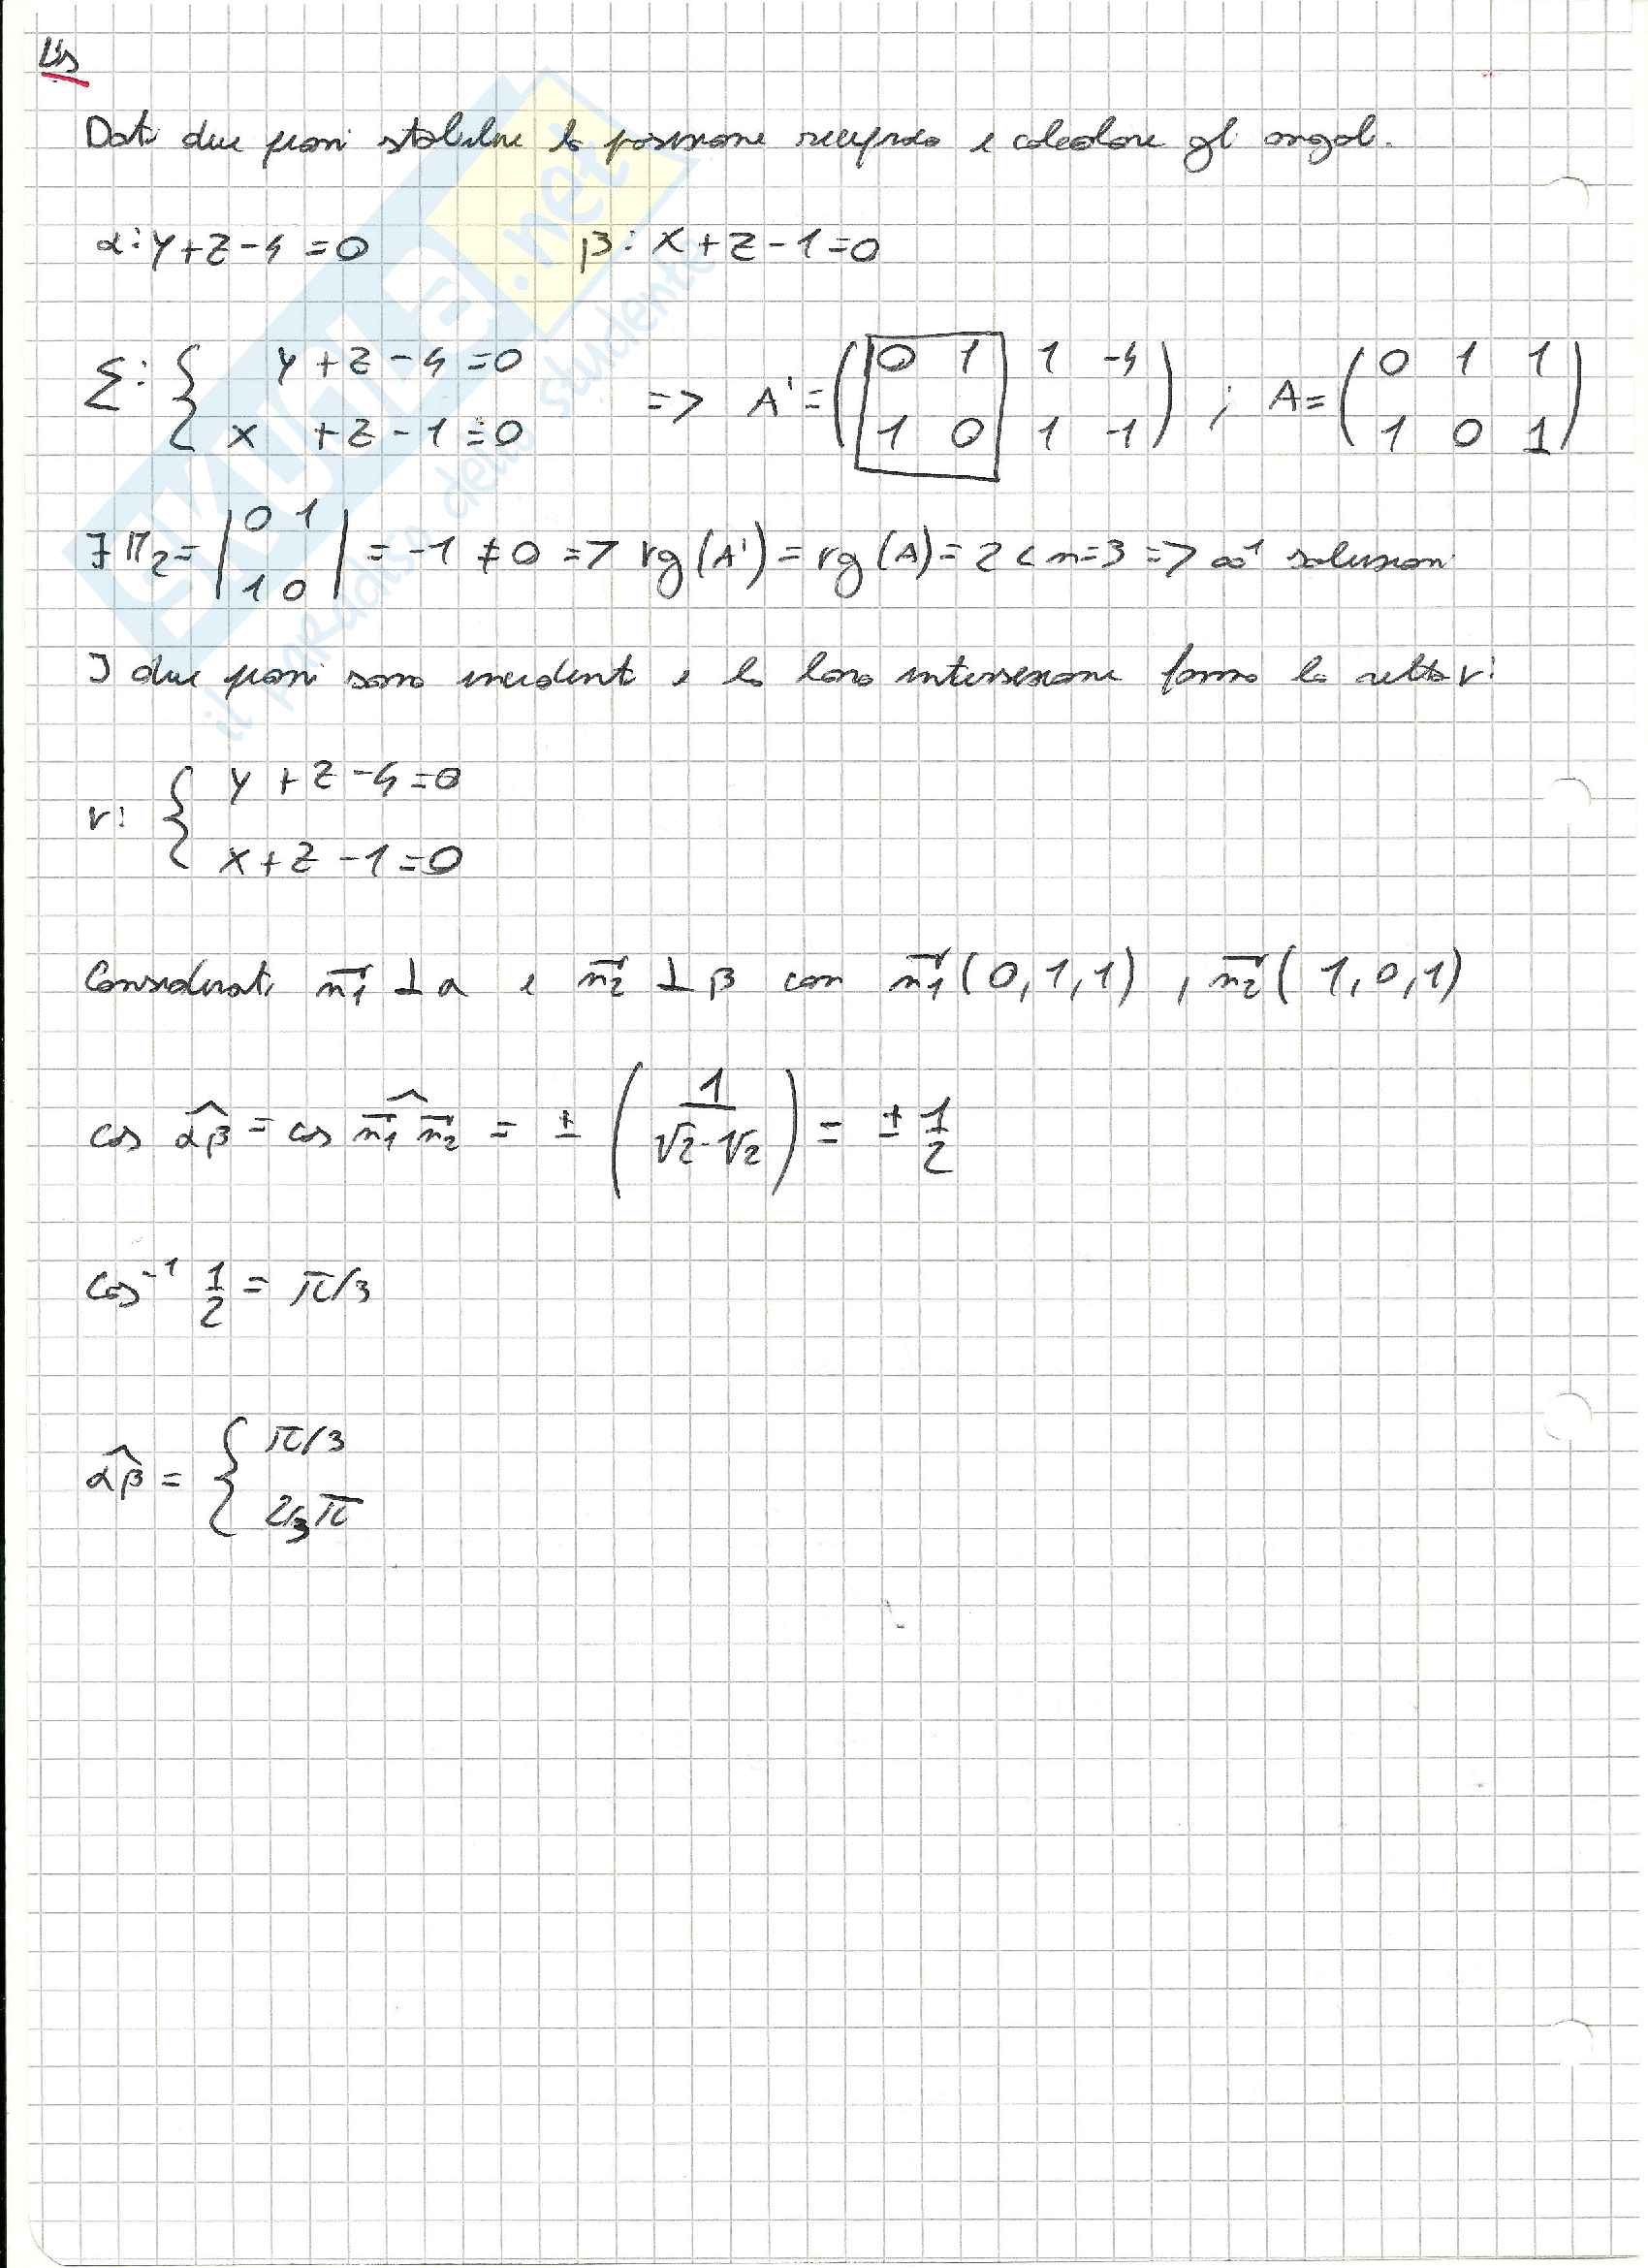 Dati due piani stabilire la posizione reciproca e calcolare gli angoli.
α: y+z-4=0 β: x+z-1=0
Σ: { y+z-4=0 => A'= (0 1 1 -4 ; A= (0 1 1
x +z-1=0 1 0 1 -1) 1 0 1)
∃ M2= |0 1
1 0| = -1 ≠ 0 => rg(A')=rg(A)=2<n=3 => ∞¹ soluzioni
I due piani sono incidenti e la loro intersezione forma la retta r:
r: { y+z-4=0
x+z-1=0
Considerati n1 ⊥ α e n2 ⊥ β con n1(0,1,1), n2(1,0,1)
cos αβ = cos n1 n2 = ± (1/√2·√2) = ± 1/2
cos⁻¹ 1/2 = π/3
αβ = { π/3
2/3 π
SKUOLA.net
il paradiso dello studente